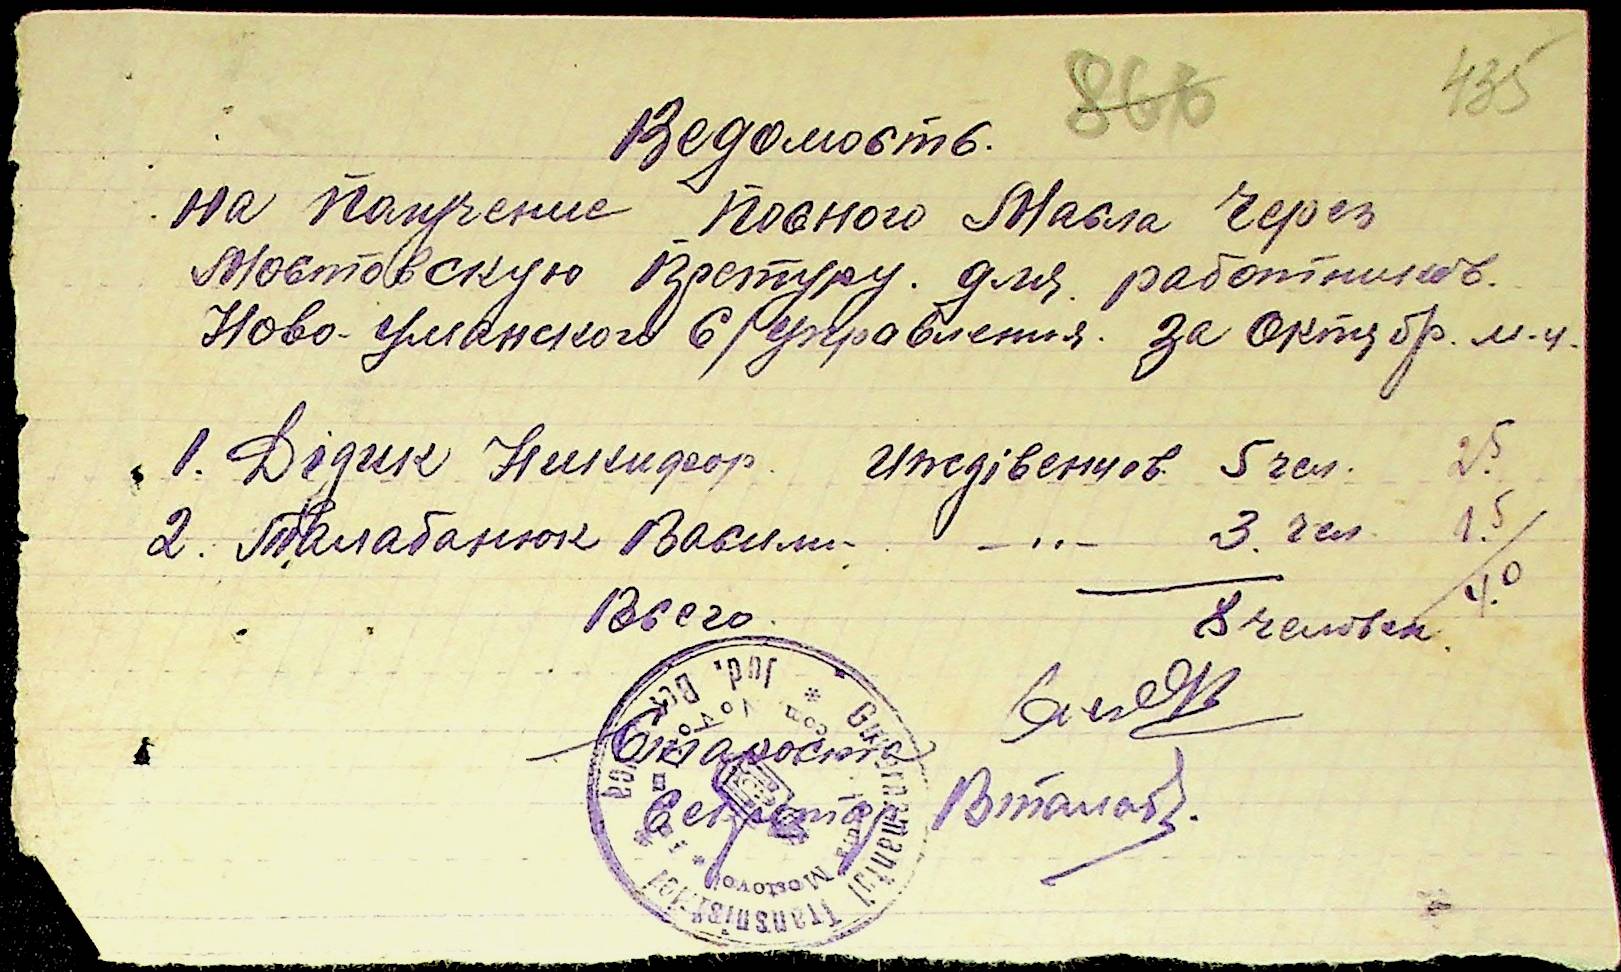 866 435
Ведомость.
на Получение Посного Масла Через
Мостовскую Претуру. для работников.
Ново-Уманского С/Управления. За Октябр. м-ц.
1. Дідик Никифор. Иждівенцов 5 чел. 2.5
2. Талабанюк Васили - " - 3. чел. 1.5
4.0
Всего. 8 человек.
Староста
Секретар ВТалаб
Guvernamantul Transnistriei
Jud. Ber
Mostovoi